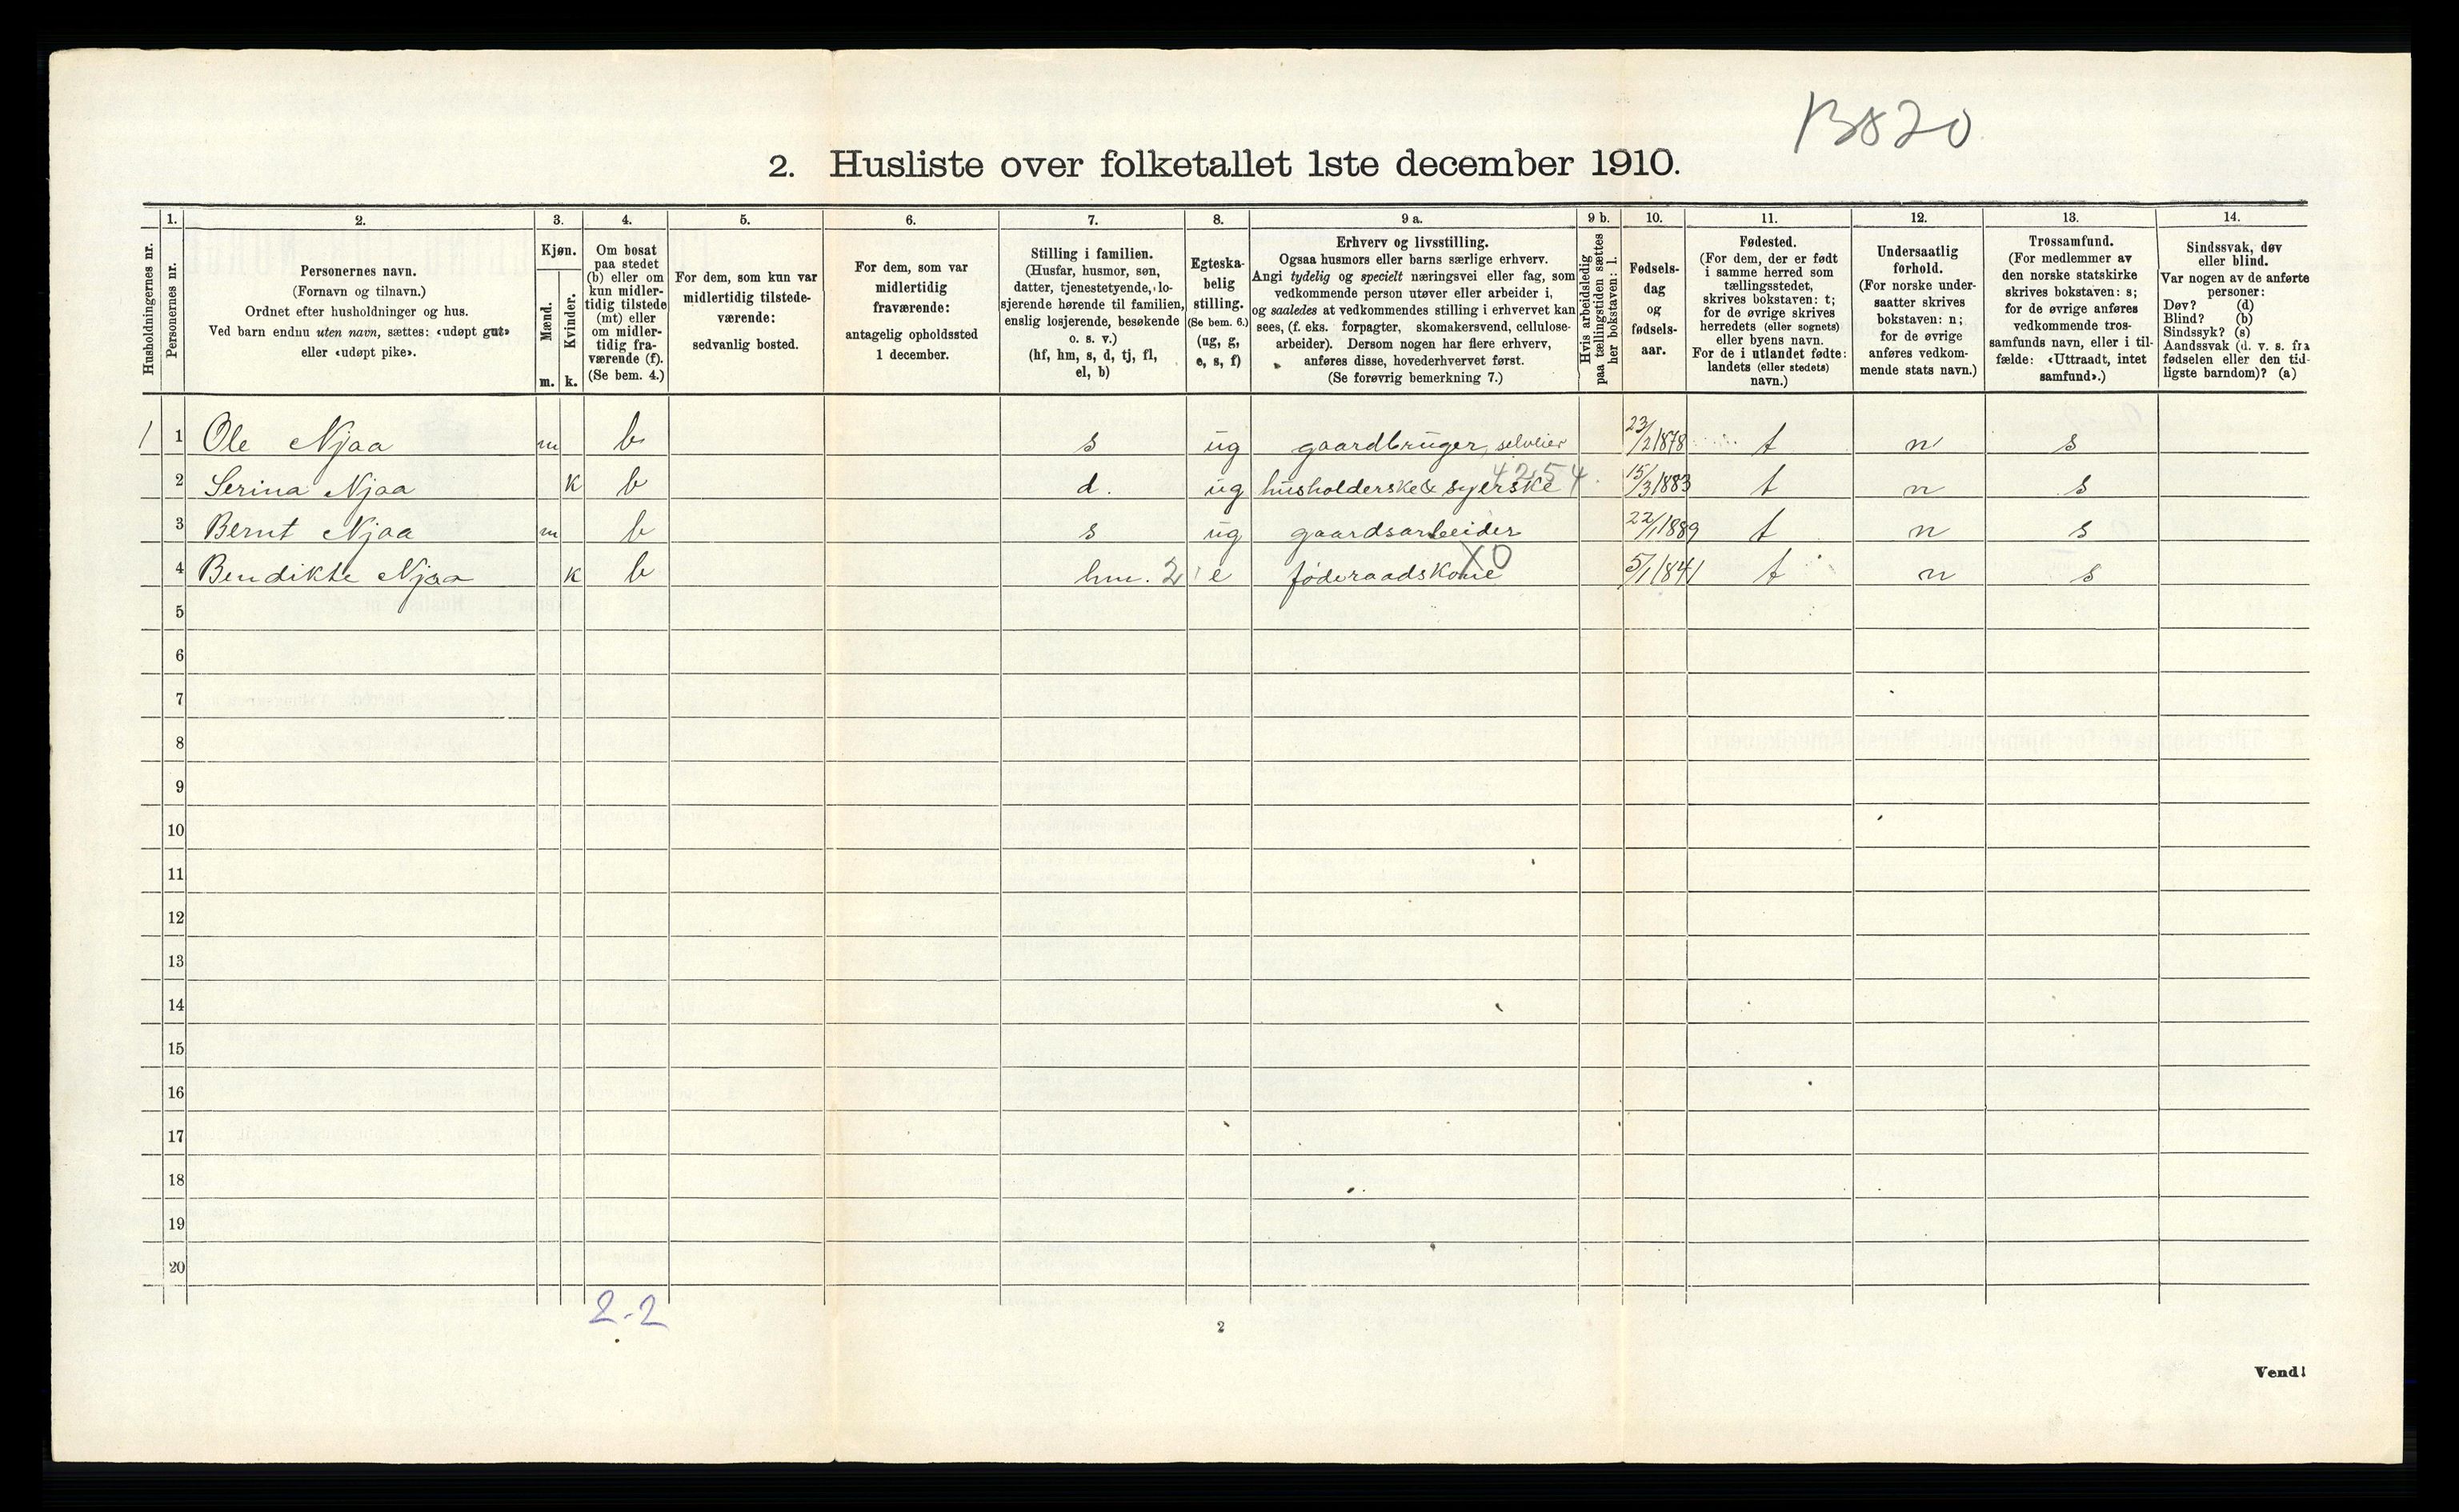 B820
2. Husliste over folketallet 1ste december 1910.
Husholdningernes nr.
1.
Personernes nr.
2.
Personernes navn.
(Fornavn og tilnavn.)
Ordnet efter husholdninger og hus.
Ved barn endnu uten navn, sættes: «udøpt gut»
eller «udøpt pike».
3.
Kjøn.
Mænd.
Kvinder.
m. k.
4.
Om bosat
paa stedet
(b) eller om
kun midler-
tidig tilstede
(mt) eller
om midler-
tidig fra-
værende (f).
(Se bem. 4.)
5.
For dem, som kun var
midlertidig tilstede-
værende:
sedvanlig bosted.
6.
For dem, som var
midlertidig
fraværende:
antagelig opholdssted
1 december.
7.
Stilling i familien.
(Husfar, husmor, søn,
datter, tjenestetyende, lo-
sjerende hørende til familien,
enslig losjerende, besøkende
o. s. v.)
(hf, hm, s, d, tj, fl,
el, b)
8.
Egteska-
belig
stilling.
(Se bem. 6.)
(ug, g,
e, s, f)
9 a.
Erhverv og livsstilling.
Ogsaa husmors eller barns særlige erhverv.
Angi tydelig og specielt næringsvei eller fag, som
vedkommende person utøver eller arbeider i,
og saaledes at vedkommendes stilling i erhvervet kan
sees, (f. eks. forpagter, skomakersvend, cellulose-
arbeider). Dersom nogen har flere erhverv,
anføres disse, hovederhvervet først.
(Se forøvrig bemerkning 7.)
9 b.
Hvis arbeidsledig
paa tællingstiden sættes
her bokstaven: l.
10.
Fødsels-
dag
og
fødsels-
aar.
11.
Fødested.
(For dem, der er født
i samme herred som
tællingsstedet,
skrives bokstaven: t;
for de øvrige skrives
herredets (eller sognets)
eller byens navn.
For de i utlandet fødte:
landets (eller stedets)
navn.)
12.
Undersaatlig
forhold.
(For norske under-
saatter skrives
bokstaven: n;
for de øvrige
anføres vedkom-
mende stats navn.)
13.
Trossamfund.
(For medlemmer av
den norske statskirke
skrives bokstaven: s;
for de øvrige anføres
vedkommende tros-
samfunds navn, eller i til-
fælde: «Uttraadt, intet
samfund».)
14.
Sindssvak, døv
eller blind.
Var nogen av de anførte
personer:
Døv? (d)
Blind? (b)
Sindssyk? (s)
Aandssvak (d. v. s. fra
fødselen eller den tid-
ligste barndom)? (a)
1 1 Ole Njaa m b s ug gaardbruger, selveier 23/2 1878 t n s
2 Serina Njaa k b d. ug husholderske & syerske 4254. 15/3 1883 t n s
3 Bernt Njaa m b s ug gaardsarbeider 22/1 1889 t n s
4 Bendikte Njaa k b hm. 2 e føderaadskone X0 5/1 1841 t n s
5
6
7
8
9
10
11
12
13
14
15
16
17
18
19
20
2-2
2
Vend!